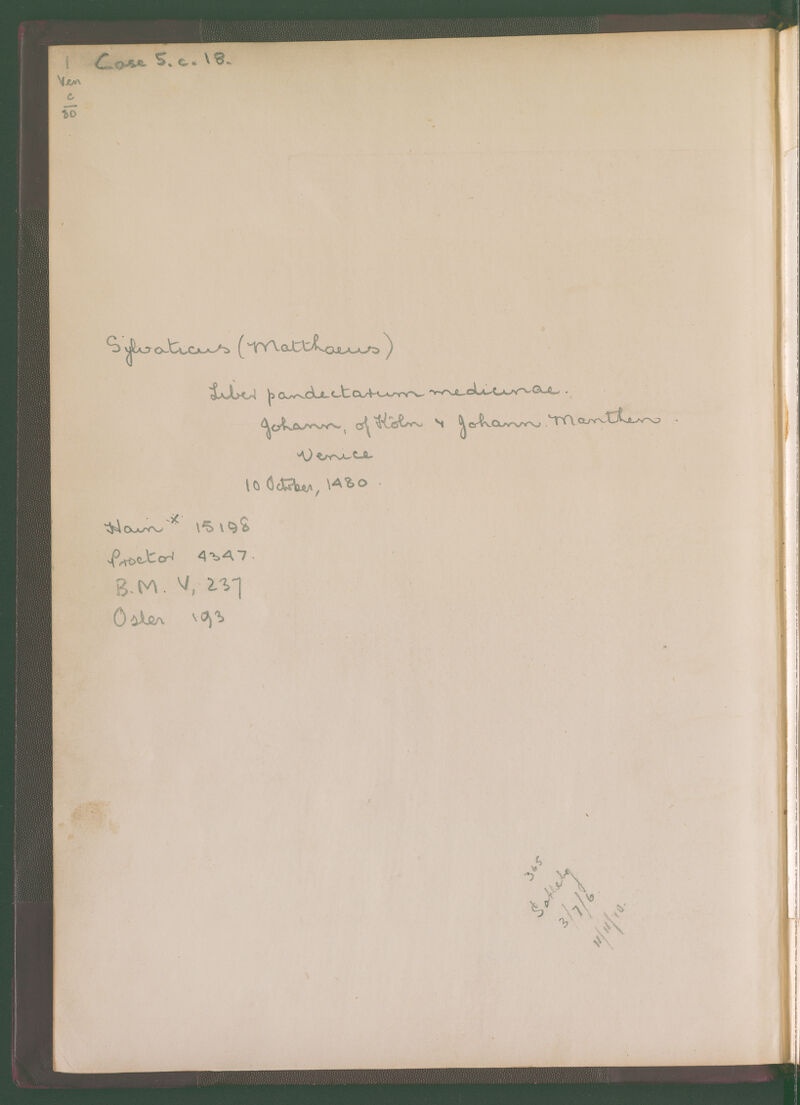 1 Case 5. c. 18.
Ven
c
80
Sylvaticus (Matthaeus)
Liber pandectarum medicinae.
Johann, of Köln & Johann Manthen.
Venice
10 October, 1480.
Hain * 15198
Proctor 4347.
B.M. V, 237
Osler 193
365
Sotheby
3/7/6
11/11/10.